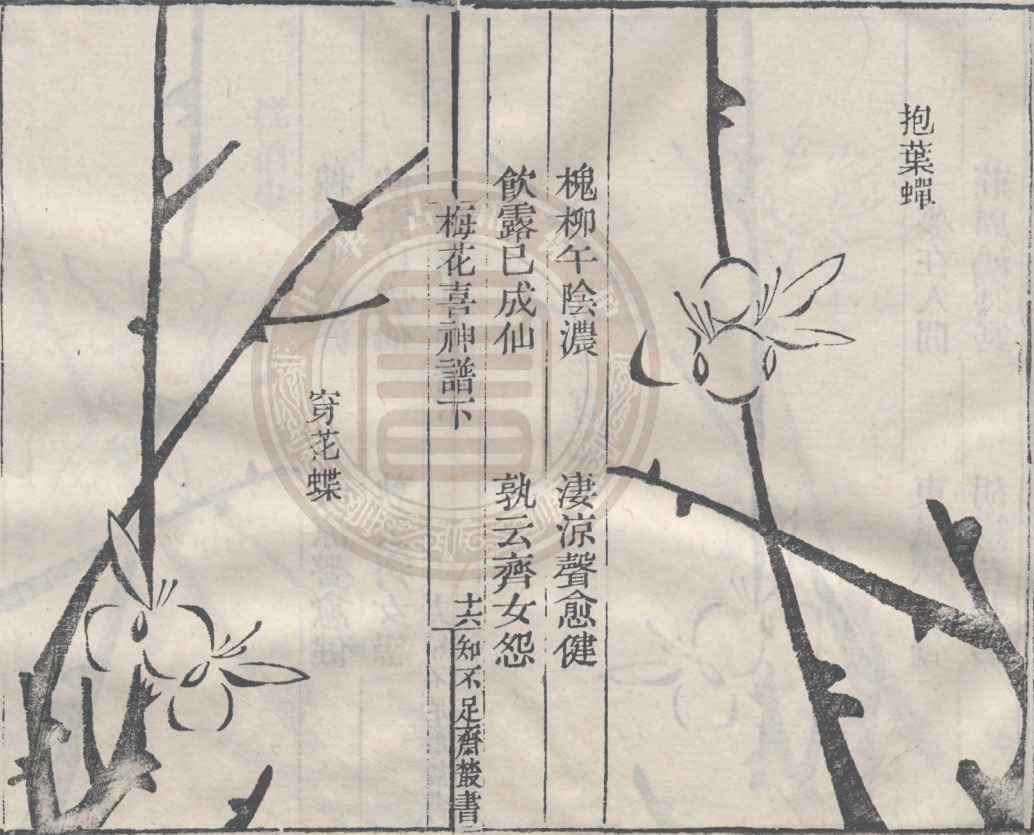 抱葉蟬
槐柳午陰濃　淒涼聲愈健
飲露已成仙　孰云齊女怨
梅花喜神譜下　十六　知不足齋叢書
穿花蝶